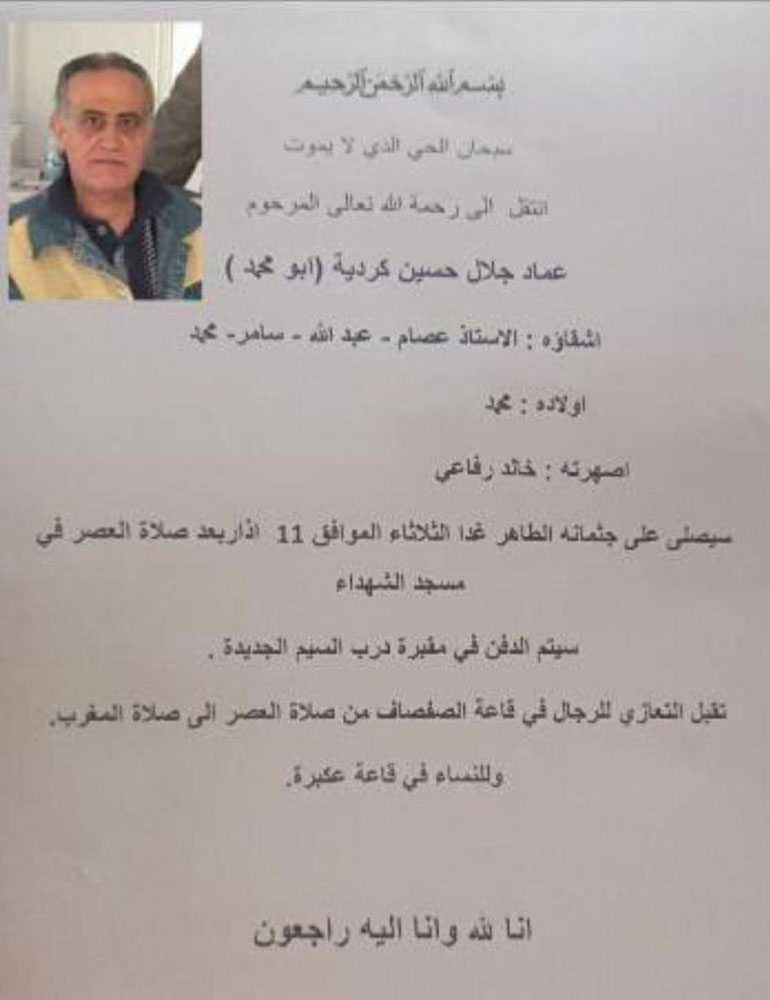 بسم الله الرحمن الرحيم
سبحان الحي الذي لا يموت
انتقل الى رحمة الله تعالى المرحوم
عماد جلال حسين كردية (ابو محمد )
اشقاؤه : الاستاذ عصام - عبد الله - سامر- محمد
اولاده : محمد
اصهرته : خالد رفاعي
سيصلى على جثمانه الطاهر غدا الثلاثاء الموافق 11 اذاربعد صلاة العصر في
مسجد الشهداء
سيتم الدفن في مقبرة درب السيم الجديدة .
تقبل التعازي للرجال في قاعة الصفصاف من صلاة العصر الى صلاة المغرب.
وللنساء في قاعة عكبرة.
انا لله وانا اليه راجعون